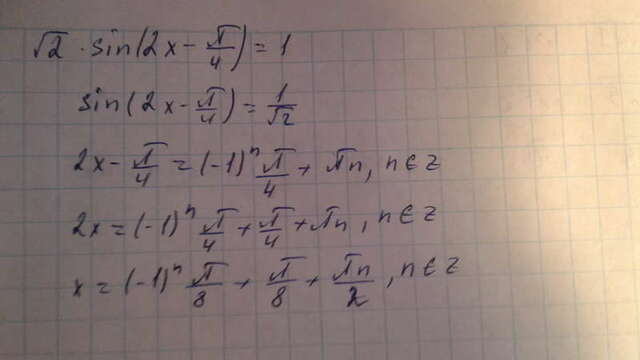 √2 · sin(2x − π/4) = 1
sin(2x − π/4) = 1/√2
2x − π/4 = (−1)ⁿ π/4 + πn, n ∈ z
2x = (−1)ⁿ π/4 + π/4 + πn, n ∈ z
x = (−1)ⁿ π/8 + π/8 + πn/2, n ∈ z